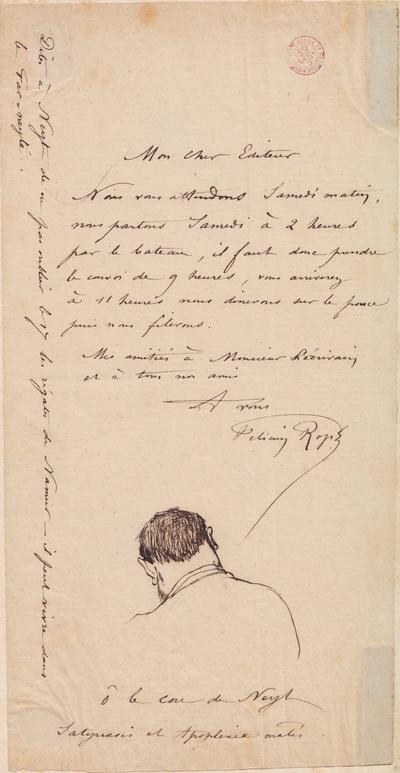 Mon cher Editeur
Nous vous attendons Samedi matin,
nous partons Samedi à 2 heures
par le bateau, il faut donc prendre
le convoi de 9 heures, vous arriverez
à 11 heures nous dinerons sur le pouce
puis nous filerons.
Mes amitiés à Monsieur Lécrivain
et à tous nos amis
A vous
Félicien Rops
Ô le cou de Neyt
Satyriasis et Apoplexie mêlés.
Dites à Neyt de ne pas oublier le 17 les régates de Namur – il peut venir dans
le